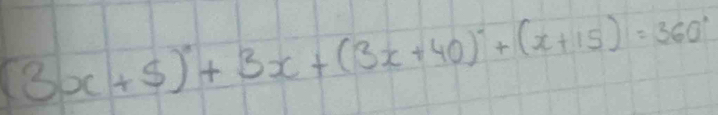 (3x+5)°+3x+(3x+40)°+(x+15)=360°